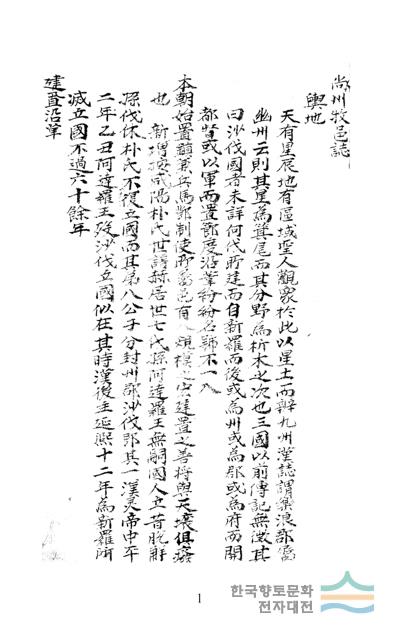 尚州牧邑誌
輿地
天有星辰地有區域聖人觀象於此以星土而辨九州漢誌謂樂浪郡屬
幽州云則其星爲箕尾而其分野爲析木之次也三國以前傳記無徵其
曰沙伐國者未詳何代所建而自新羅而後或爲州或爲郡或爲府而開
都督或以軍而置節度沿革紛紛名號不一入
本朝始置 兼兵馬 制使 有 建置之善將與天壤俱
也 新增按咸陽朴氏世譜赫居世七代孫阿達羅王無嗣國人立昔脫解
孫伐休朴氏不復立國而其第八公子分封州郡沙伐卽其一漢靈帝中平
二年乙丑阿達羅王歿沙伐立國似在其時漢後主延熙十二年爲新羅所
滅立國不過六十餘年
建置沿革
1
한국향토문화
전자대전